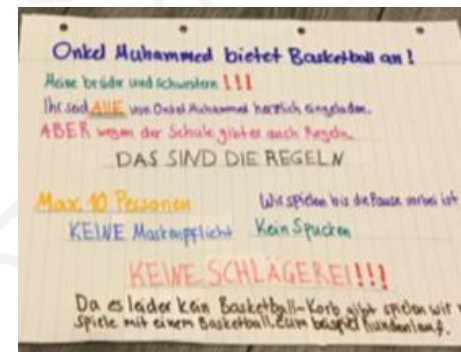 Onkel Muhammed bietet Basketball an!
Meine brüder und schwestern !!!
Ihr seid ALLE von Onkel Muhammed herzlich eingeladen.
ABER wegen der Schule gibt es auch Regeln.
DAS SIND DIE REGELN
Max. 10 Personen
Wir spielen bis die Pause vorbei ist
KEINE Maskenpflicht
Kein Spucken
KEINE SCHLÄGEREI!!!
Da es leider kein Basketball-Korb gibt spielen wir
Spiele mit einem Basketball zum beispiel Rundenlauf.